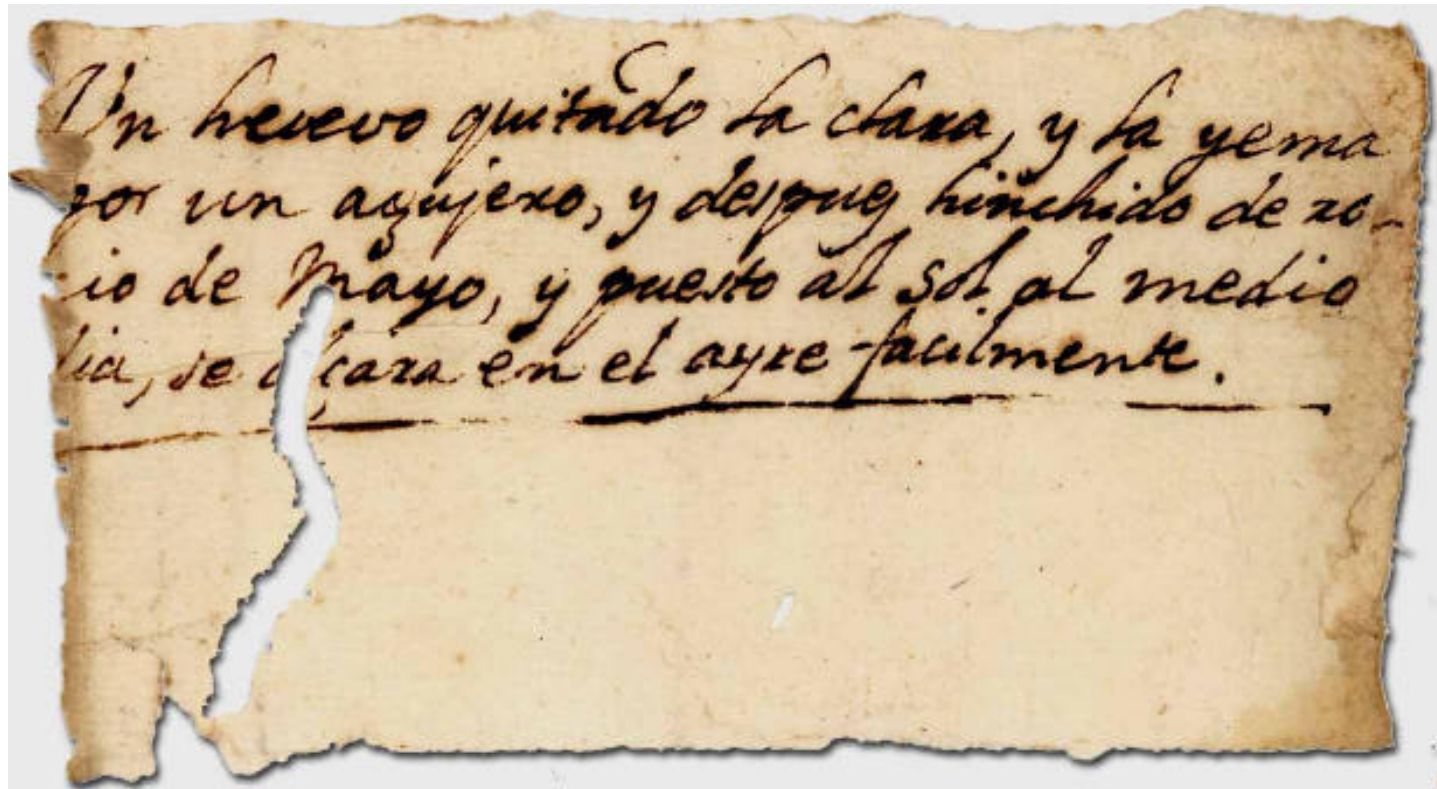 Un huevo quitado la clara, y la yema
por un agujero, y despues hinchido de ro-
cio de Mayo, y puesto al Sol al medio
dia, se alçara en el ayre facilmente.